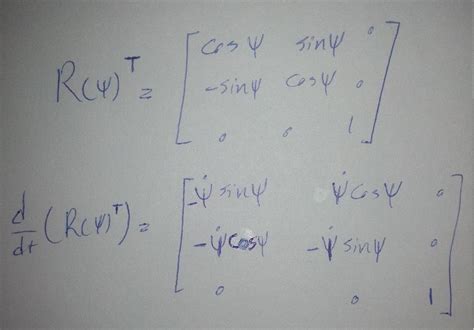 R(ψ)ᵀ = [ cos ψ sinψ 0
-sinψ cos ψ 0
0 0 1 ]
d/dt (R(ψ)ᵀ) = [ -ψ̇ sinψ ψ̇ cosψ 0
-ψ̇ cosψ -ψ̇ sinψ 0
0 0 1 ]